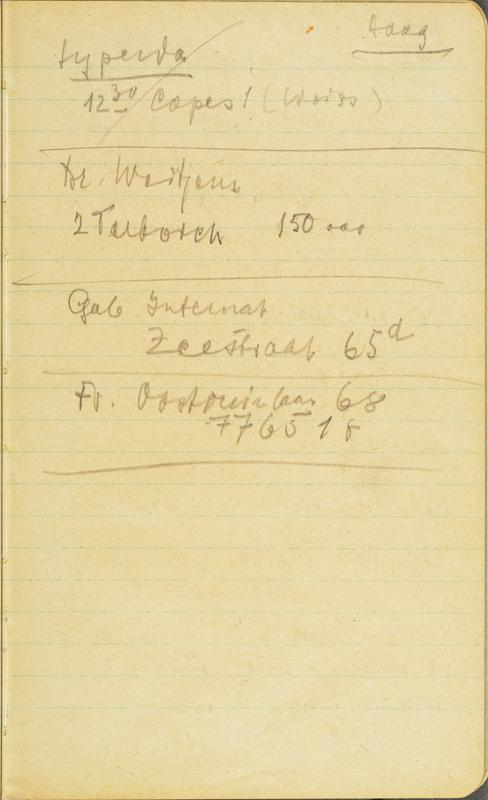 Haag
Lyperda
12 30 Capes! (Weiss)
Dr. Weitjens
2 Terborch 150 000
Gab Internat
Zeestraat 65d
Fr. Oostduinlaan 68
776518